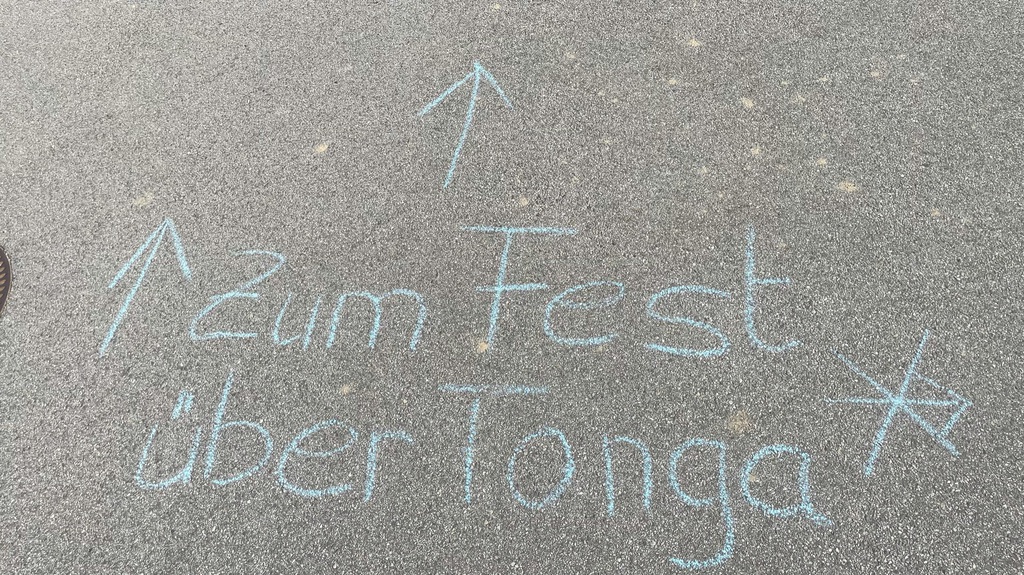 Zum Fest
über Tonga